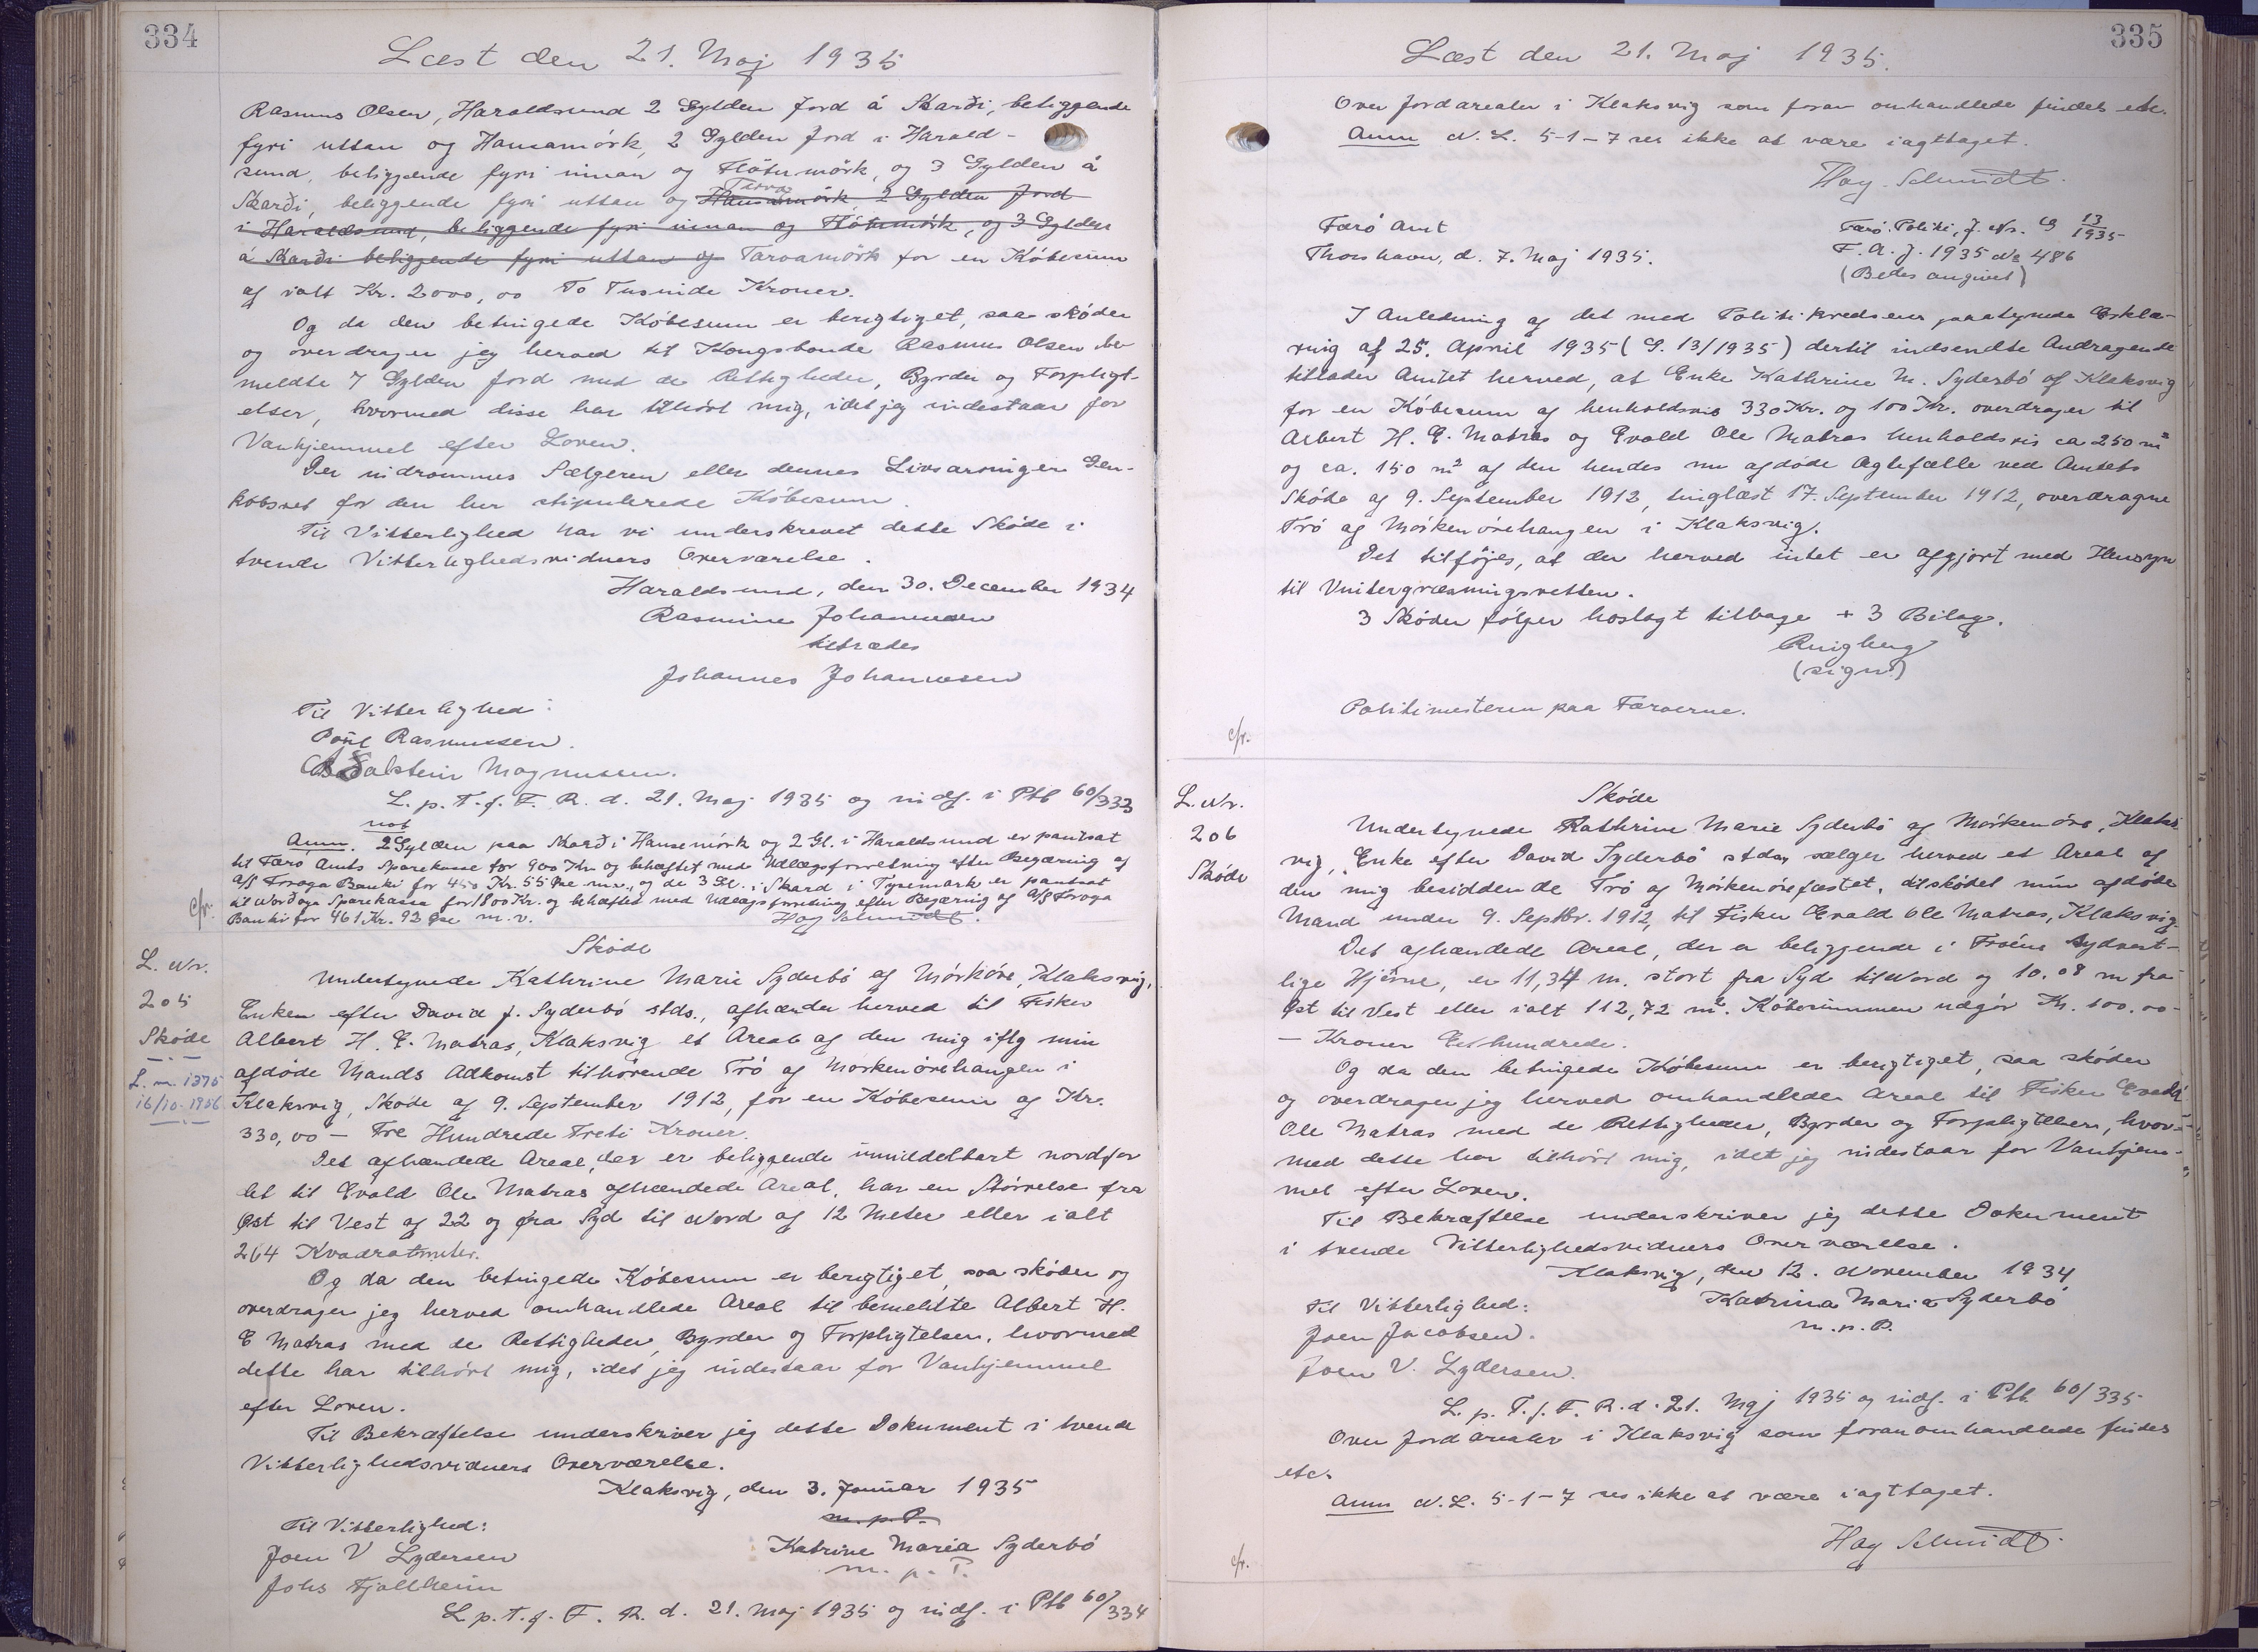 334
Læst den 21. Maj 1935
Rasmus Olsen, Haraldsund 2 Gylden Jord á Skarði, beliggende
fyri uttan og Hansamörk, 2 Gylden Jord i Harald-
sund, beliggende fyri innan og Flötumörk, og 3 Gylden á
Skarði, beliggende fyri uttan og Hansamörk, 2 Gylden Jord
i Haraldsund, beliggende fyri innan og Flötumörk, og 3 Gylden
á Skarði beliggende fyri uttan og Tarvamörk for en Köbesum
af ialt Kr. 2000,00 To Tusinde Kroner.
Og da den betingede Köbesum er berigtiget, saa sköder
og overdrager jeg herved til Kongsbonde Rasmus Olsen be-
meldte 7 Gylden Jord med de Rettigheder, Byrder og Forpligt-
elser, hvormed disse har tilhört mig, idet jeg indestaar for
Vanhjemmel efter Loven.
Der indrømmes Sælgeren eller dennes Livsarvinger Gen-
købsret for den her stipulerede Köbesum.
Til Vitterlighed har vi underskrevet dette Sköde i
tvende Vitterlighedsvidners Overværelse.
Haraldsund, den 30. December 1934
Rasmine Johannesen
tiltrædes
Johannes Johannesen
Til Vitterlighed:
Poul Rasmussen.
Magnussen.
L. p. T. f. F. R. d. 21. Maj 1935 og indf. i Ptb 60/333
not
Anm. 2 Gylden paa Skarð i Hansemörk og 2 Gl. i Haraldsund er pantsat
til Færö Amts Sparekasse for 900 Kr. og behæftet med Udlægsforretning efter Begæring af
A/S Foroya Banki for 450 Kr. 55 Øre m.v., og de 3 Gl. i Skard i Tysemark er pantsat
til Norðoya Sparekassa for 1800 Kr. og behæftet med Udlægsforretning efter Begæring af A/S Foroya
Banki for 461 Kr. 92 Øre m.v. Hag Schmidt.
c/r.
L. Nr.
205
Sköde
L. nr. 1375
16/10-1956
Sköde
Undertegnede Kathrine Marie Syderbö af Mörköre, Klaksvig,
Enken efter David J. Syderbö stds., afhænder herved til Fisker
Albert H. E. Matras, Klaksvig et Areal af den mig iflg min
afdöde Mands Adkomst tilhörende Trö af Mörkenörehaugen i
Klaksvig, Sköde af 9. September 1912, for en Köbesum af Kr.
330,00 - Tre Hundrede Treti Kroner.
Det afhændede Areal, der er beliggende umiddelbart nordfor
det til Evald Ole Matras afhændede Areal, har en Störrelse fra
Øst til Vest af 22 og fra Syd til Nord af 12 Meter eller ialt
264 Kvadratmeter.
Og da den betingede Köbesum er berigtiget, saa sköder og
overdrager jeg herved omhandlede Areal til bemeldte Albert H.
E Matras med de Rettigheder, Byrder og Forpligtelser, hvormed
dette har tilhört mig, idet jeg indestaar for Vanhjemmel
efter Loven.
Til Bekræftelse underskriver jeg dette Dokument i tvende
Vitterlighedsvidners Overværelse.
Klaksvig, den 3. Januar 1935
m. p. P.
Til Vitterlighed:
Joen V Lydersen
Katrine Maria Syderbó
Johs Fjallheim
m. p. P.
L p. T. f. F. R. d. 21. Maj 1935 og indf. i Ptb 60/334
335
Læst den 21. Maj 1935.
Over Jordarealer i Klaksvig som foran omhandlede findes etc.
Anm N. L. 5-1-7 ses ikke at være iagttaget.
Hag. Schmidt.
Færö Amt
Færö Politi, J. Nr. G 13/1935
Thorshavn, d. 7. Maj 1935.
F. A. J. 1935 No 486
(Bedes angivet)
I Anledning af det med Politikredsens paategnede Erklæ-
ring af 25. April 1935 (G. 13/1935) dertil indsendte Andragende
tillader Amtet herved, at Enke Kathrine M. Syderbö af Klaksvig
for en Köbesum af henholdsvis 330 Kr. og 100 Kr. overdrager til
Albert H. E. Matras og Evald Ole Matras henholdsvis ca 250 m²
og ca. 150 m² af den hendes nu afdöde Ægtefælle ved Amtets
Sköde af 9. September 1912, tinglæst 17. September 1912, overdragne
Trö af Mörkenörehaugen i Klaksvig.
Det tilföjes, at der herved intet er afgjort med Hensyn
til Vintergræsningsretten.
3 Sköder fölger hoslagt tilbage + 3 Bilag.
Ringberg
(sign.)
Politimesteren paa Færøerne.
c/r.
L. Nr.
206
Sköde
Sköde
Undertegnede Kathrine Marie Syderbö af Mörkenöre, Klaks-
vig, Enke efter David Syderbö stds, sælger herved et Areal af
den mig besiddende Trö af Mörkenörefæstet, tilsködet min afdöde
Mand under 9. Septbr. 1912, til Fisker Evald Ole Matras, Klaksvig
Det afhændede Areal, der er beliggende i Tröens sydvest-
lige Hjörne, er 11,34 m. stort fra Syd til Nord og 10.08 m fra
Øst til Vest eller ialt 112,72 m². Köbesummen udgör Kr. 100.00-
- Kroner Ethundrede.
Og da den betingede Köbesum er berigtiget, saa sköder
og overdrager jeg herved omhandlede Areal til Fisker Evald
Ole Matras med de Rettigheder, Byrder og Forpligtelser, hvor-
med dette har tilhört mig, idet jeg indestaar for Vanhjem-
mel efter Loven.
Til Bekræftelse underskriver jeg dette Dokument
i tvende Vitterlighedsvidners Overværelse.
Klaksvig, den 12. November 1934
Til Vitterlighed:
Katrina Maria Syderbó
Joen Jacobsen.
m. p. P.
Joen V. Lydersen.
L. p. T. f. F. R. d. 21. Maj 1935 og indf. i Ptb. 60/335
Over Jordarealer i Klaksvig som foran omhandlede findes
etc.
Anm N. L. 5-1-7 ses ikke at være iagttaget.
Hag Schmidt.
c/r.